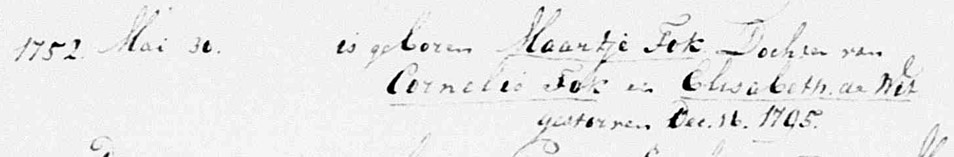 1752. Mai 30. is geboren Maartje Fok Dochter van
Cornelis Fok en Elisabeth de Wit
gestorven Dec. 16. 1795.